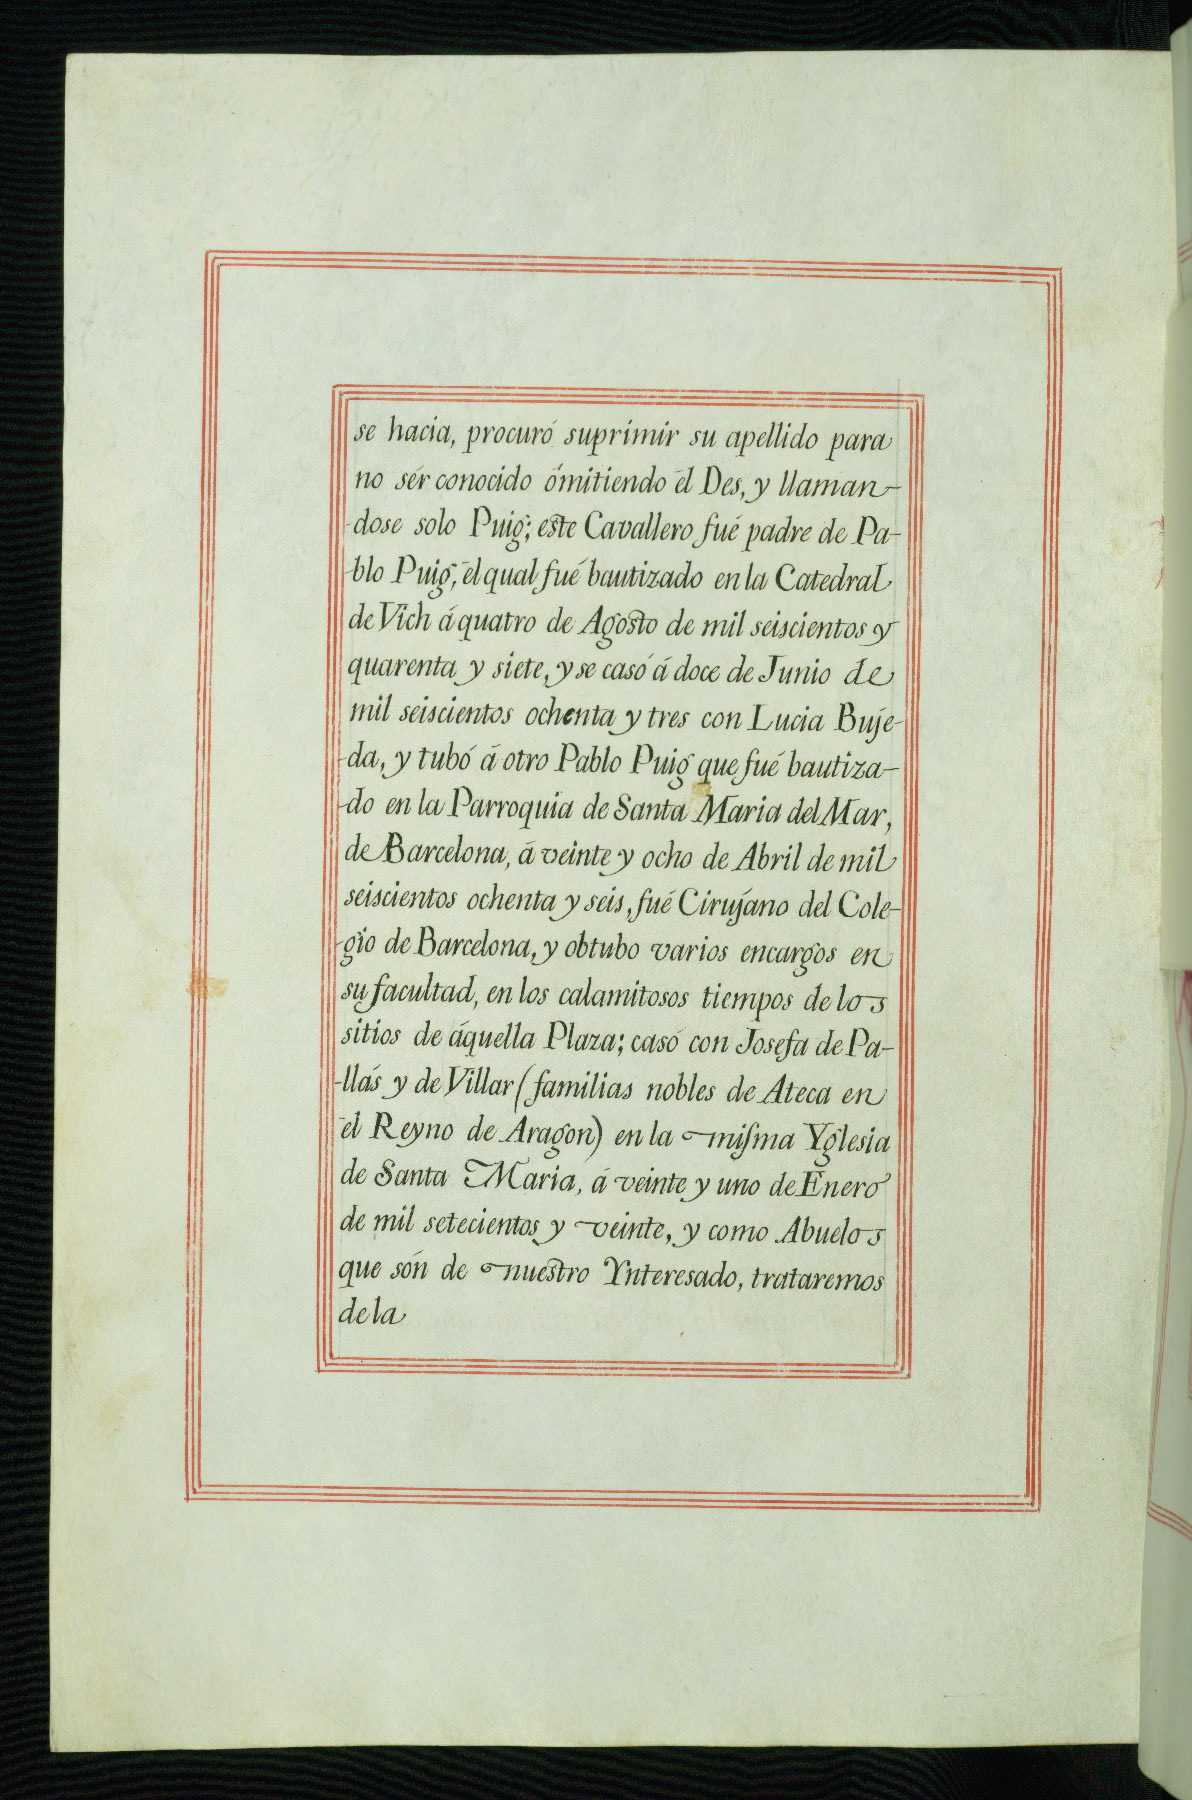 se hacia, procuró suprimir su apellido para
no sér conocido ómitiendo él Des, y llaman-
-dose solo Puig; este Cavallero fué padre de Pa-
-blo Puig, él qual fué bautizado en la Catedral
de Vich á quatro de Agosto de mil seiscientos y
quarenta y siete, y se casó á doce de Junio de
mil seiscientos ochenta y tres con Lucia Buje-
-da, y tubó á otro Pablo Puig que fué bautiza-
-do en la Parroquia de Santa Maria del Mar,
de Barcelona, á veinte y ocho de Abril de mil
seiscientos ochenta y seis, fué Cirujano del Cole-
-gio de Barcelona, y obtubo varios encargos en
su facultad, en los calamitosos tiempos de los
sitios de áquella Plaza; casó con Josefa de Pa-
-llás y de Villar (familias nobles de Ateca en
él Reyno de Aragon) en la miſma Yglesia
de Santa Maria, á veinte y uno de Enero
de mil setecientos y veinte, y como Abuelos
que són de nuestro Ynteresado, trataremos
de la